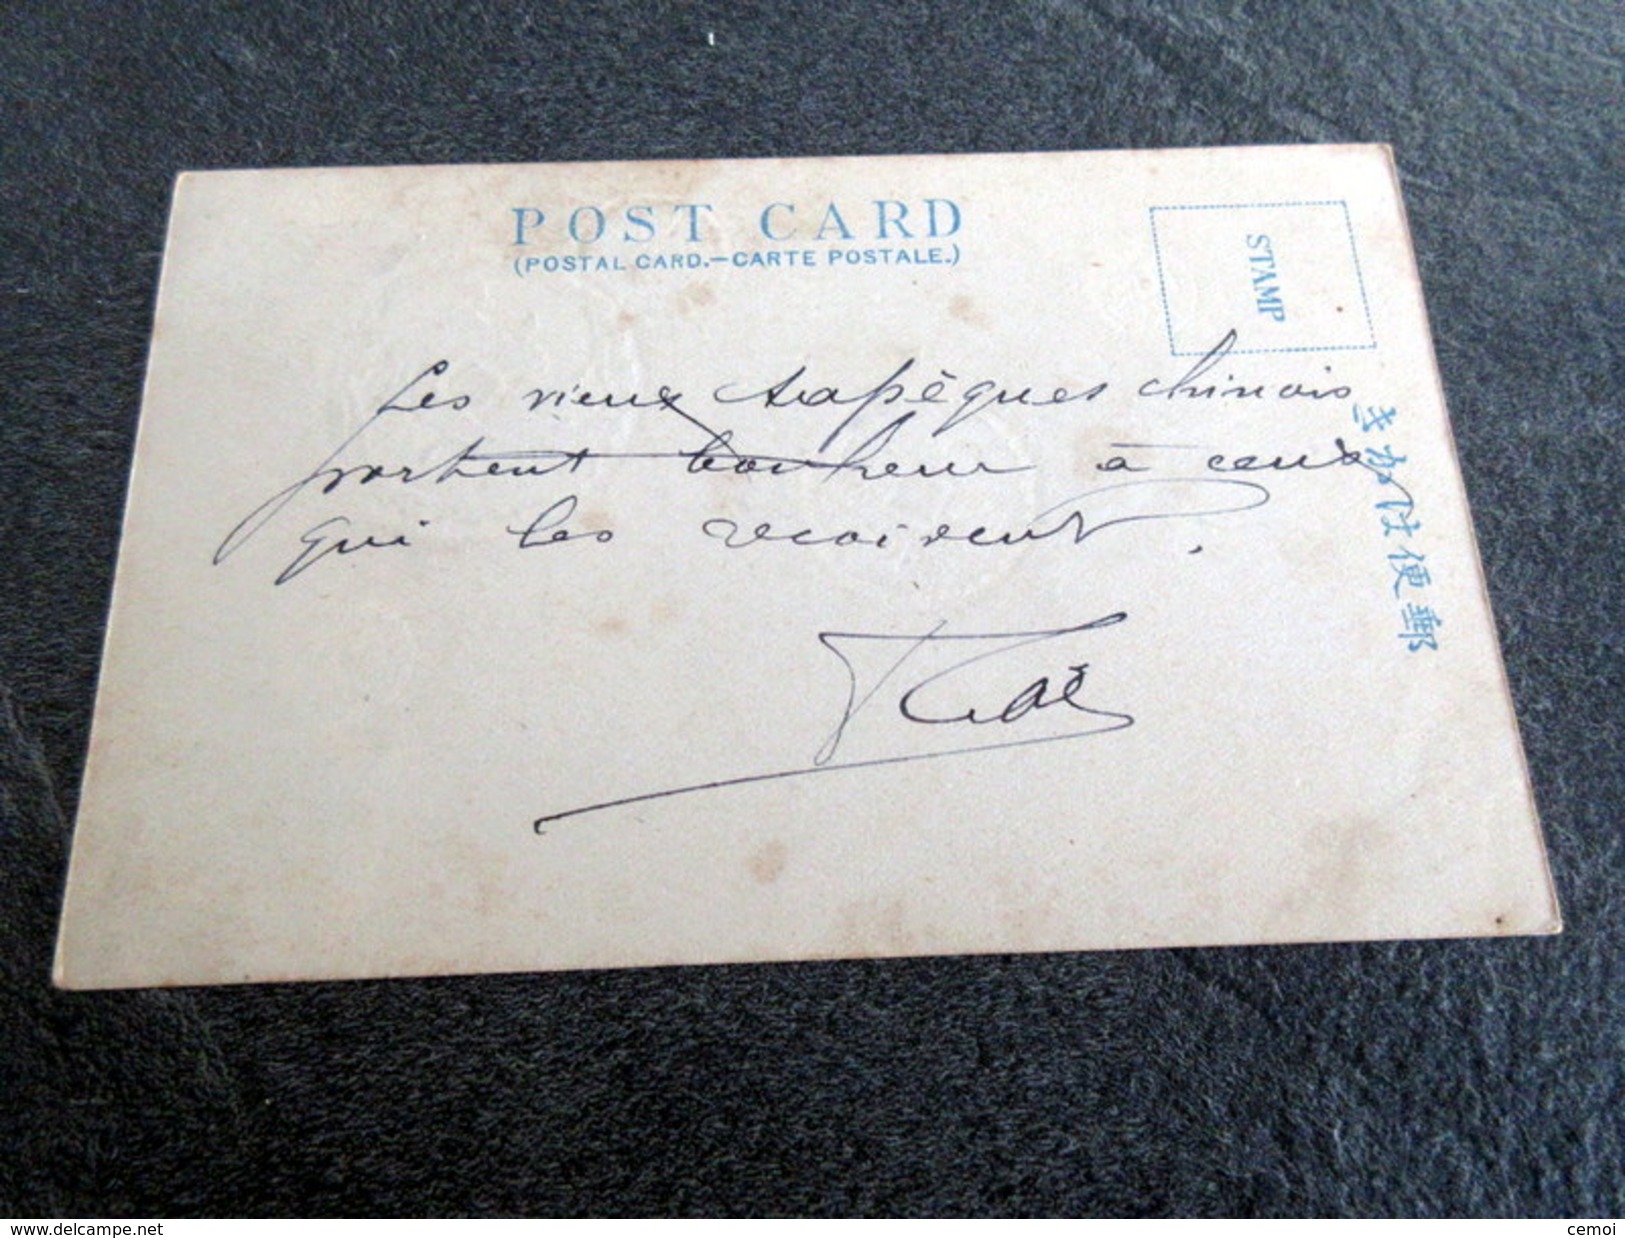 POST CARD
(POSTAL CARD.—CARTE POSTALE.)
STAMP
Les vieux sapèques chinois
portent bonheur à ceux
qui les reçoivent.
郵便はかき
www.delcampe.net
cemoi